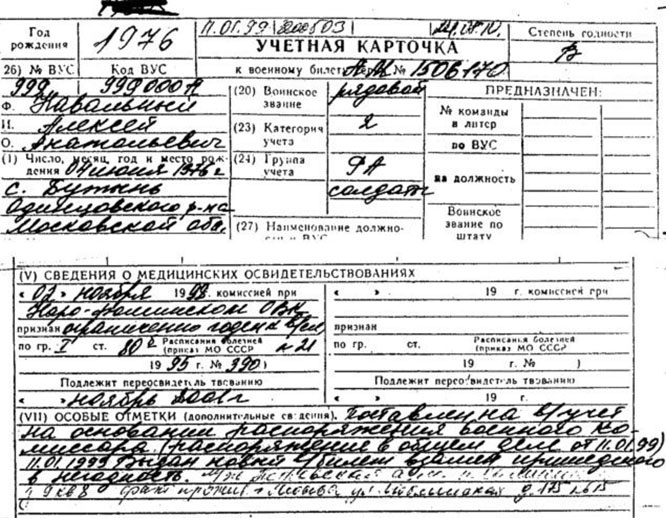 Год рождения
1976
11.01.99
Степень годности
В
УЧЕТНАЯ КАРТОЧКА
к военному билету АН № 1506170
26) № ВУС
Код ВУС
999
999000А
Ф. Навальный
И. Алексей
О. Анатольевич
(1) Число, месяц, год и место рож-
дения 04 июня 1976 г
с. Бутынь
Одинцовского р-на
Московской обл.
(20) Воинское звание
рядовой
(23) Категория учета
2
(24) Группа учета
РА
солдат
(27) Наименование должно-
ПРЕДНАЗНАЧЕН:
№ команды и литер
по ВУС
на должность
Воинское звание по штату
(V) СВЕДЕНИЯ О МЕДИЦИНСКИХ ОСВИДЕТЕЛЬСТВОВАНИЯХ
« 02 » ноября 1998 комиссией при
Наро-Фоминском ОВК
признан ограниченно годен к в/сл
по гр. I ст. 80 Расписания болезней
(приказ МО СССР
1995 г. № 390)
Подлежит переосвидетельствованию
ноябрь 2001 г
« » 19 г. комиссией при
признан
по гр. ст. Расписания болезней
(приказ МО СССР
19 г. № )
Подлежит переосвидетельствованию
« » 19 г.
(VII) ОСОБЫЕ ОТМЕТКИ (дополнительные сведения). Поставлен на в/учет
на основании распоряжения военного ко-
миссара (распоряжение в общем деле от 11.01.99)
11.01.1999 Выдан новый в/билет взамен пришедшего
в негодность.
факт прожив. г. Москва ул. Люблинская д. 175